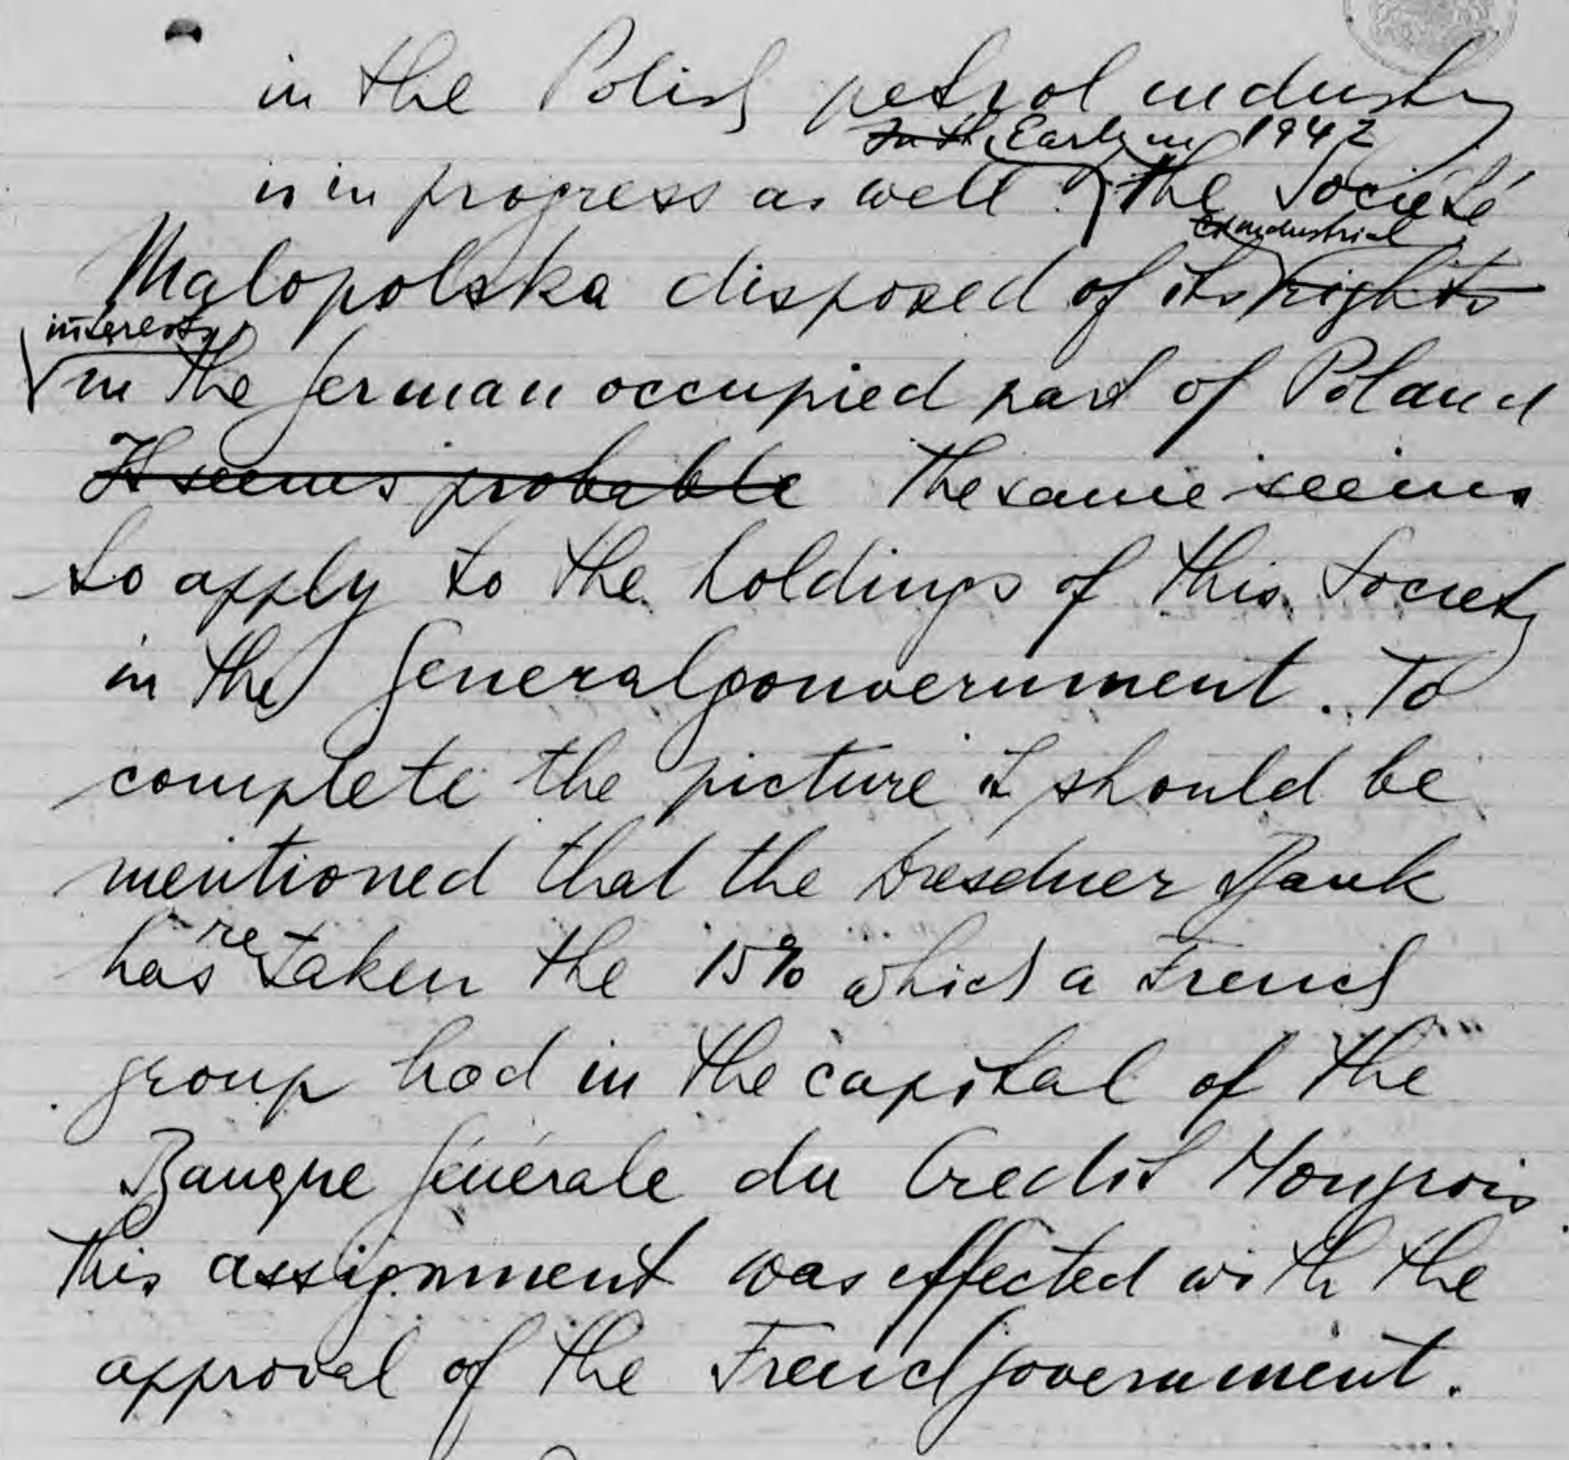 in the Polish petrol industry
In th Early in 1942
is in progress as well. The Société
industrial
Malopolska disposed of its rights
interests
in the German occupied part of Poland
It seems probable The same seems
to apply to the holdings of this Society
in the Generalgouvernment. To
complete the picture it should be
mentioned that the Dresdner Bank
re
has taken the 15% which a French
group had in the capital of the
Banque Générale du Credit Hongrois
this assignment was effected with the
approval of the French government.